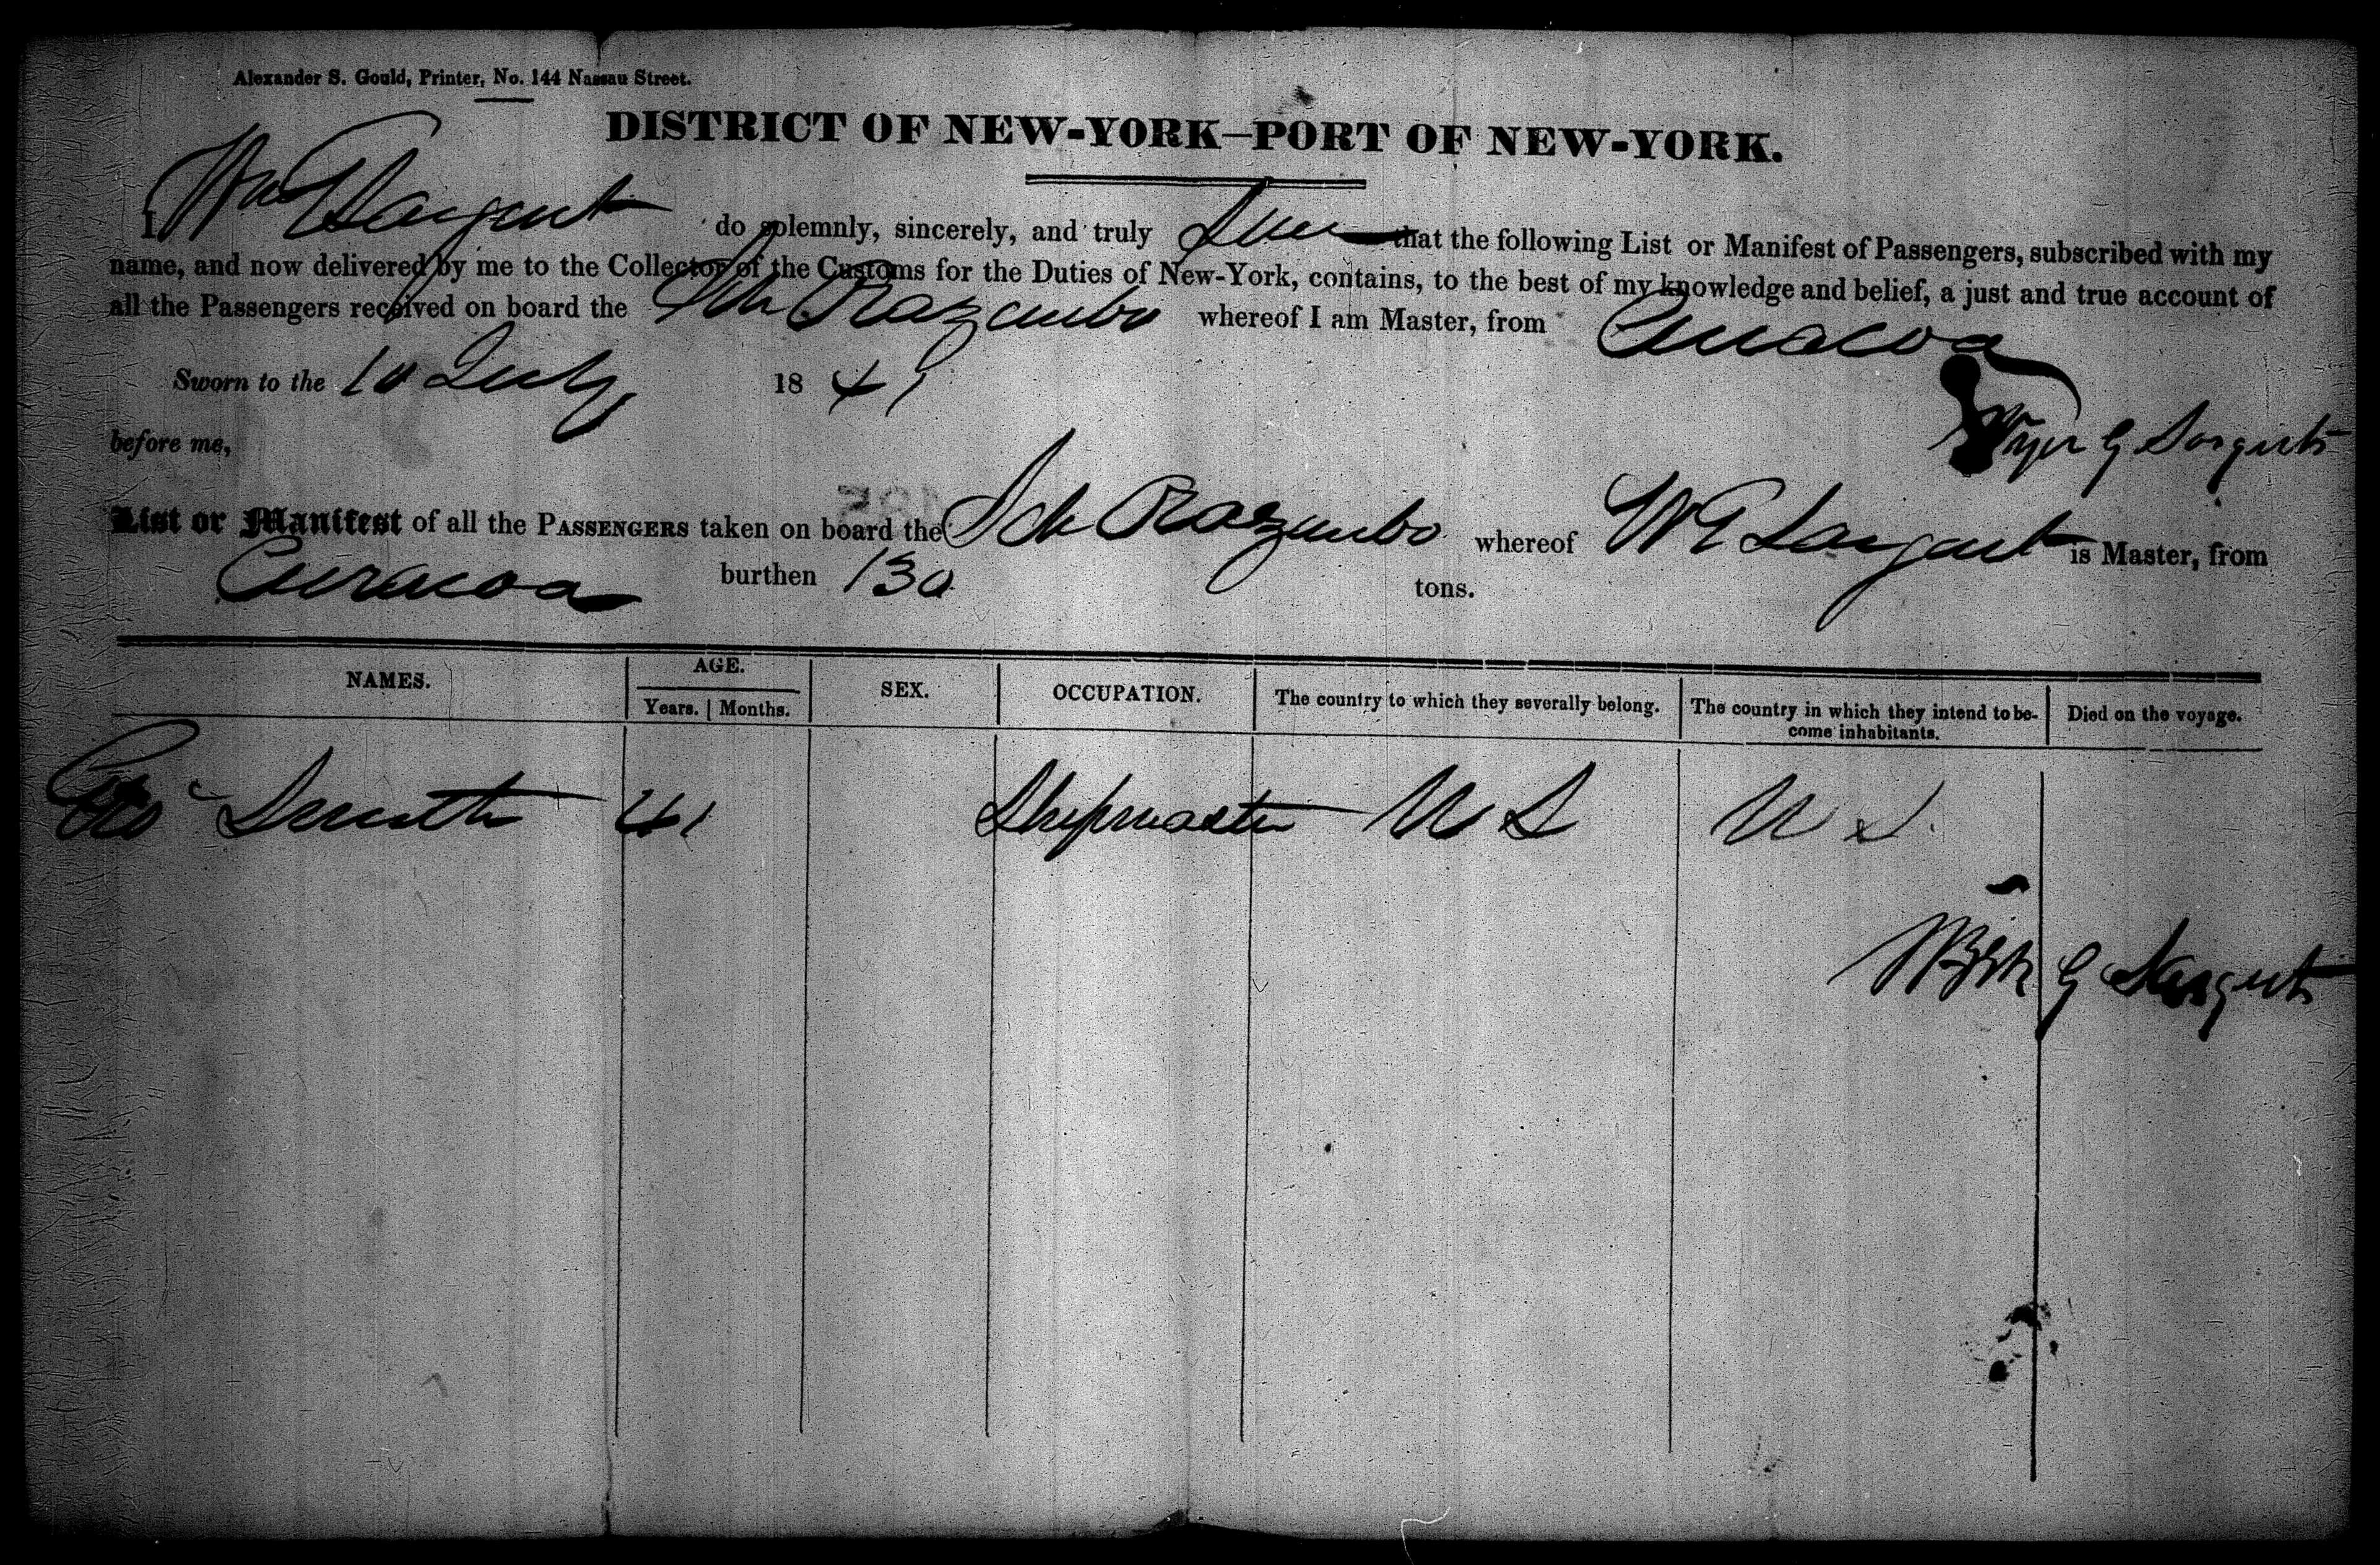 Alexander S. Gould, Printer, No. 144 Nassau Street.
DISTRICT OF NEW-YORK—PORT OF NEW-YORK.
I Wm G Sargent do solemnly, sincerely, and truly Swear that the following List or Manifest of Passengers, subscribed with my
name, and now delivered by me to the Collector of the Customs for the Duties of New-York, contains, to the best of my knowledge and belief, a just and true account of
all the Passengers received on board the Sch whereof I am Master, from Curacoa
Sworn to the 10 July 1841
before me,
G Sargent
List or Manifest of all the PASSENGERS taken on board the Sch whereof W G Sargent is Master, from
Curacoa burthen 130 tons.
NAMES. AGE. Years. Months. SEX. OCCUPATION. The country to which they severally belong. The country in which they intend to become inhabitants. Died on the voyage.
Geo Smith 41 Shipmaster U S U S.
G Sargent